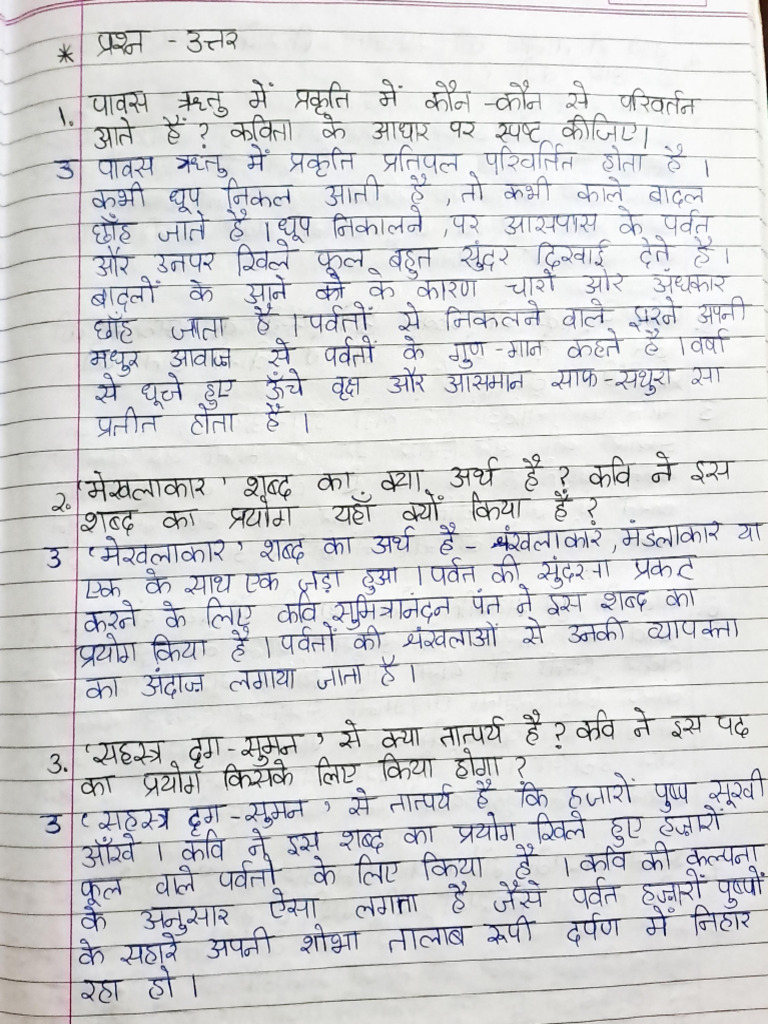 * प्रश्न - उत्तर
1. पावस ऋतु में प्रकृति में कौन-कौन से परिवर्तन
आते हैं? कविता के आधार पर स्पष्ट कीजिए।
उ पावस ऋतु में प्रकृति प्रतिपल परिवर्तित होता है ।
कभी धूप निकल आती है, तो कभी काले बादल
छाँह जाते है । धूप निकालने, पर आसपास के पर्वत
और उनपर खिले फूल बहुत सुंदर दिखाई देते है ।
बादलों के आने के कारण चारों ओर अंधकार
छाँह जाता है । पर्वतों से निकलने वाले झरने अपनी
मधुर आवाज से पर्वतों के गुण-मान कहते है । वर्षा
से धूले हुए ऊँचे वृक्ष और आसमान साफ-सथुरा सा
प्रतीत होता है ।
2. 'मेखलाकार' शब्द का क्या अर्थ है? कवि ने इस
शब्द का प्रयोग यहाँ क्यों किया है?
उ 'मेखलाकार' शब्द का अर्थ है - श्रंखलाकार, मंडलाकार या
एक के साथ एक जड़ा हुआ । पर्वत की सुंदरता प्रकट
करने के लिए कवि सुमित्रानंदन पंत ने इस शब्द का
प्रयोग किया है । पर्वतों की श्रंखलाओं से उनकी व्यापक्ता
का अंदाज लगाया जाता है ।
3. 'सहस्त्र दृग-सुमन' से क्या तात्पर्य है? कवि ने इस पद
का प्रयोग किसके लिए किया होगा?
उ 'सहस्त्र दृग-सुमन' से तात्पर्य है कि हजारों पुष्प सूखी
आँखे । कवि ने इस शब्द का प्रयोग खिले हुए हज़ारों
फूल वाले पर्वतो के लिए किया है । कवि की कल्पना
के अनुसार ऐसा लगता है जैसे पर्वत हज़ारों पुष्पों
के सहारे अपनी शोभा तालाब रूपी दर्पण में निहार
रहा हो ।